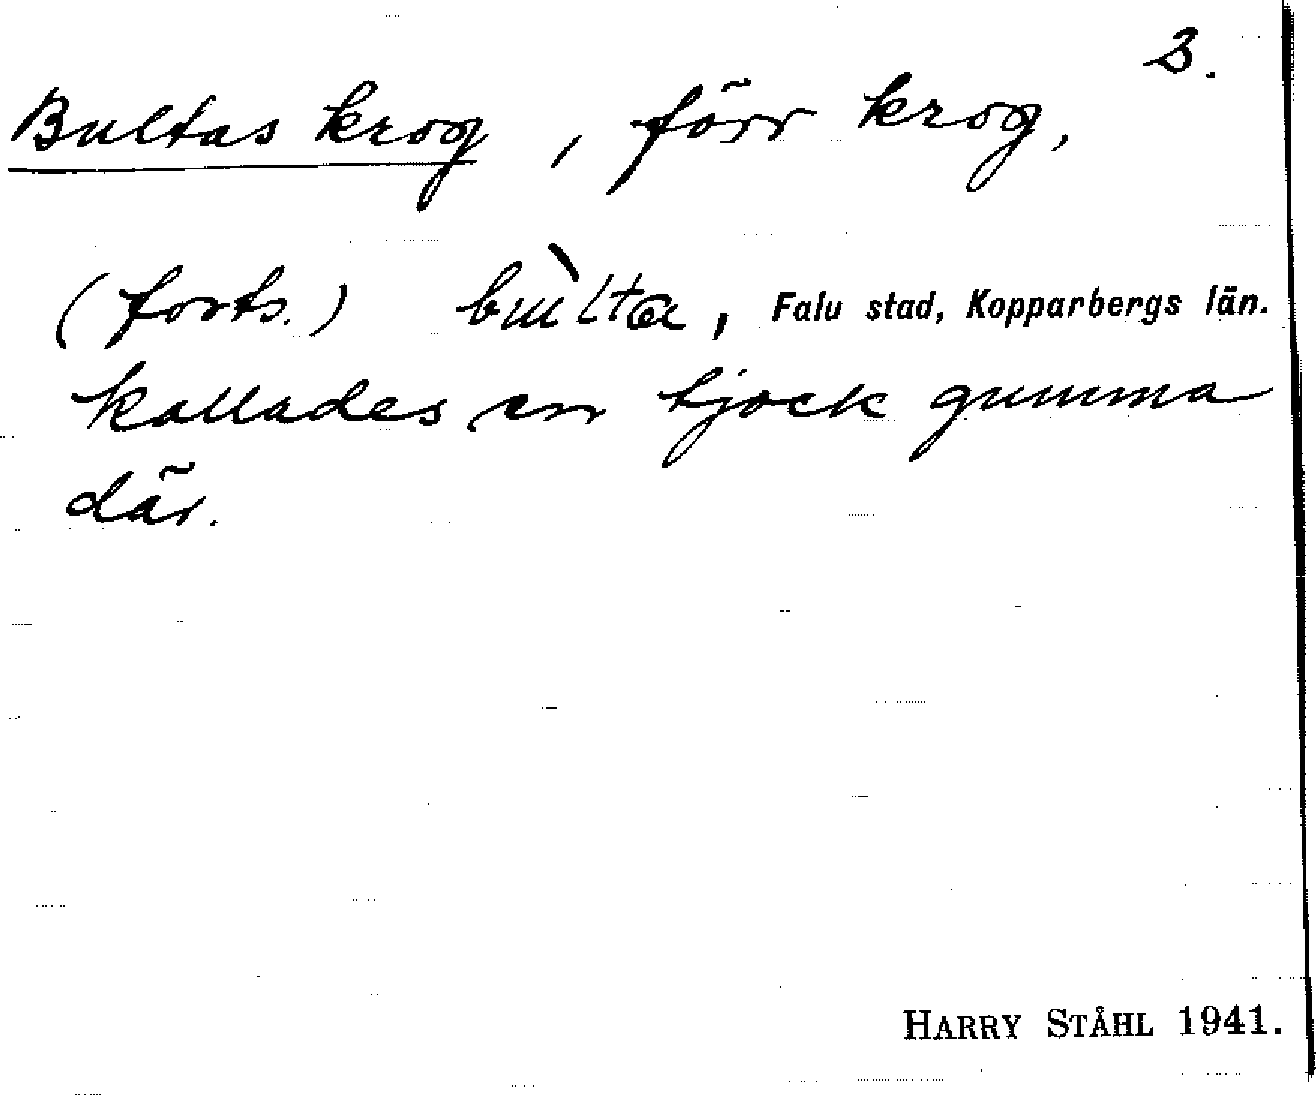 2.
Bultas krog, förr krog,
(forts.) bùlta, Falu stad, Kopparbergs län.
kallades en tjock gumma
där.
HARRY STÅHL 1941.